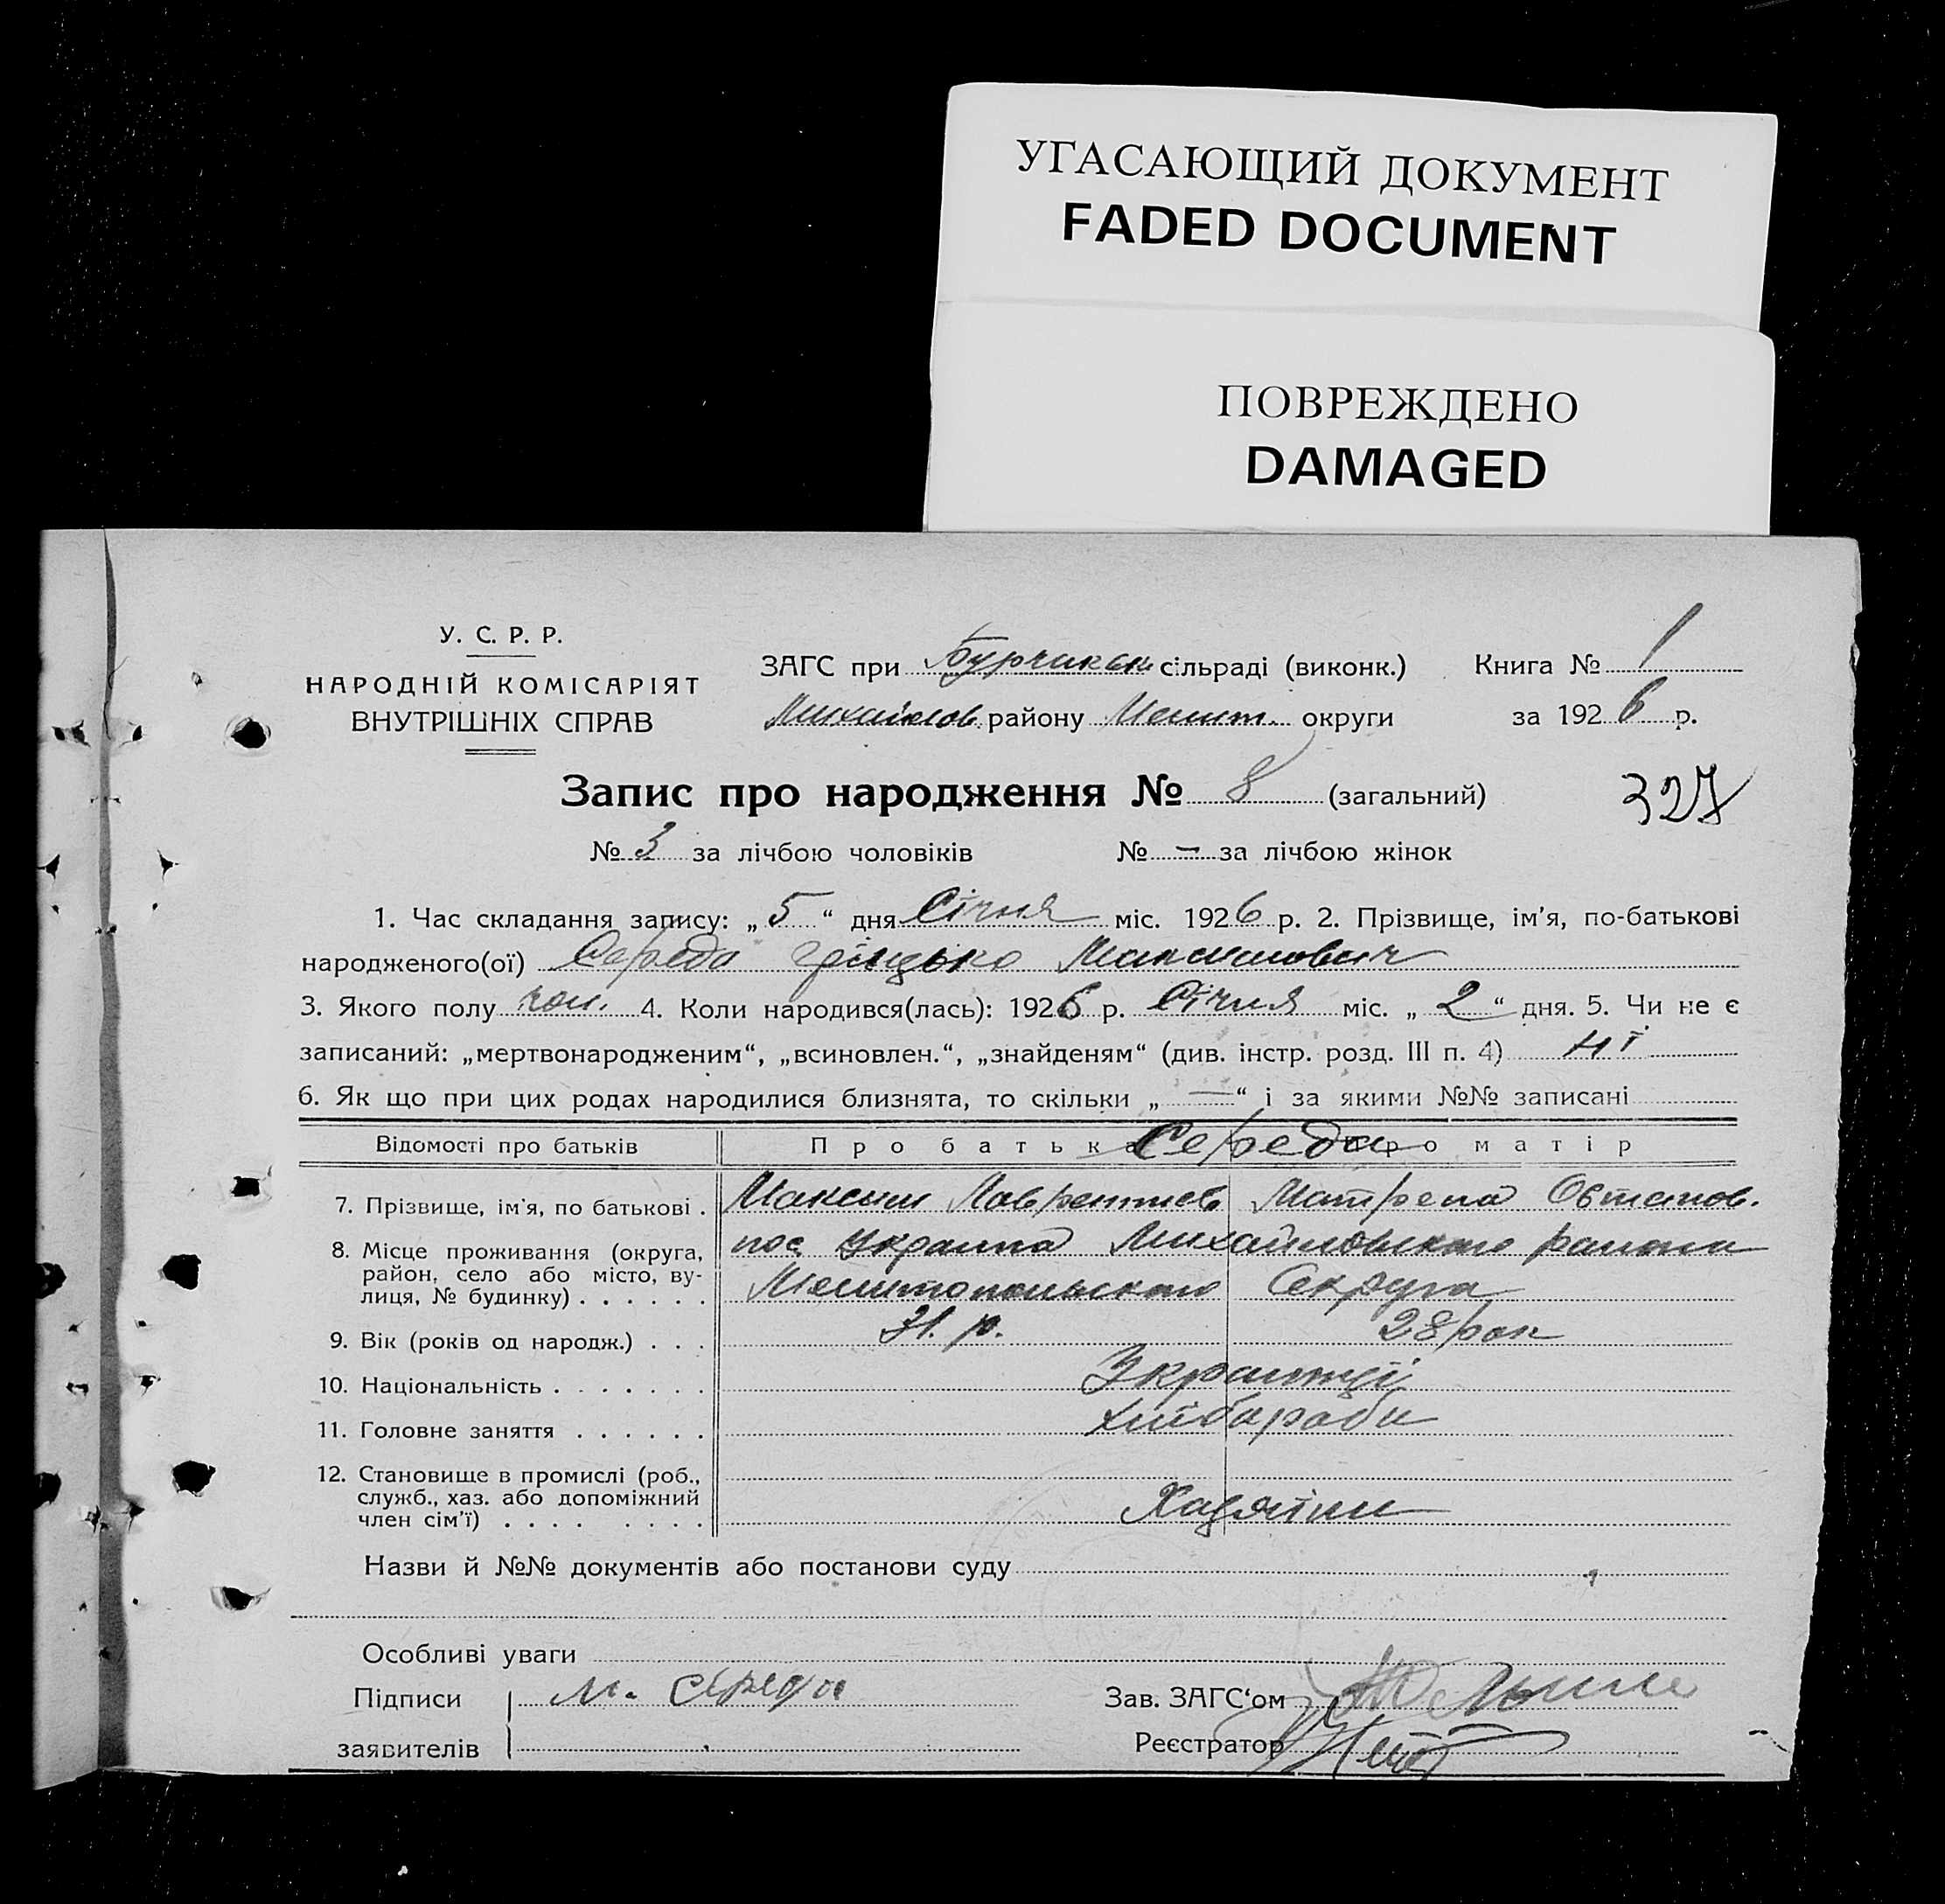 УГАСАЮЩИЙ ДОКУМЕНТ
FADED DOCUMENT
ПОВРЕЖДЕНО
DAMAGED
У. С. Р. Р.
НАРОДНІЙ КОМІСАРІЯТ
ВНУТРІШНІХ СПРАВ
ЗАГС при Бурчакск сільраді (виконк.) Книга № 1
Михайлов. району Мелит. округи за 1926 р.
Запис про народження № 8 (загальний)
327
№ 3 за лічбою чоловіків № — за лічбою жінок
1. Час складання запису: „5“ дня Січня міс. 1926 р. 2. Прізвище, ім’я, по-батькові
народженого(ої) Середа Грицько Максимович
3. Якого полу чол. 4. Коли народився(лась): 1926 р. Січня міс. „2“ дня. 5. Чи не є
записаний: „мертвонародженим“, „всиновлен.“, „знайденям“ (див. інстр. розд. III п. 4) ні
6. Як що при цих родах народилися близнята, то скільки „—“ і за якими №№ записані
Відомості про батьків Про батька Про матір
Середи
7. Прізвище, ім’я, по батькові . Максим Лаврентиев Матрена
8. Місце проживання (округа, район, село або місто, вулиця, № будинку) . . . . . . пос Украинка Михайловского района
Мелитопольского Округа
9. Вік (років од народж.) . . . 31. р. 28 рок
10. Національність . . . . . . . Українці
11. Головне заняття . . . . . . хлібароби
12. Становище в промислі (роб., служб., хаз. або допоміжний член сім’ї) . . . . . . . . Хазяїни
Назви й №№ документів або постанови суду
Особливі уваги
Підписи М. Середа Зав. ЗАГС‘ом
заявителів Реєстратор